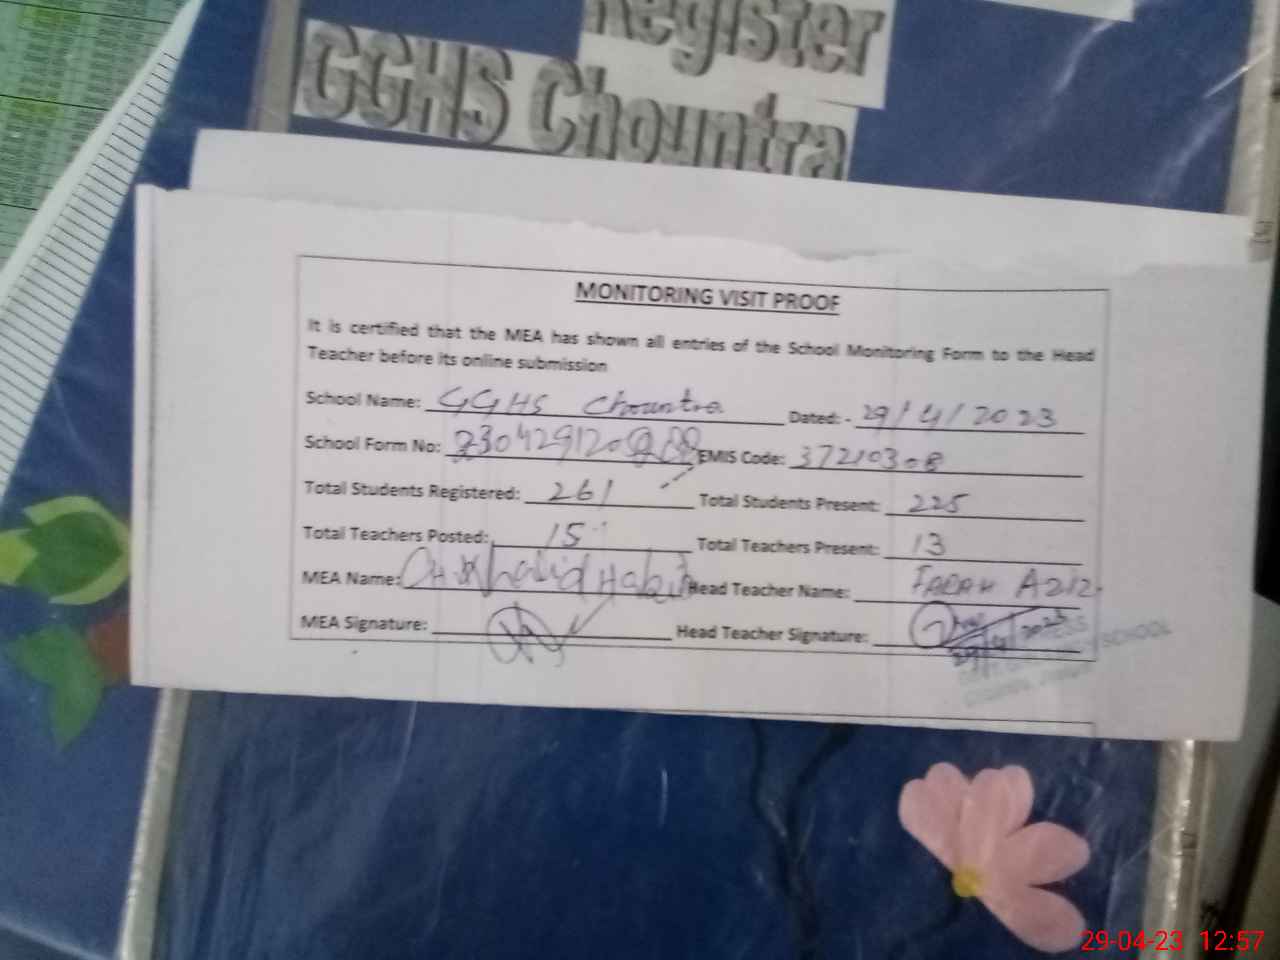 Register
GGHS Chountra
MONITORING VISIT PROOF
It is certified that the MEA has shown all entries of the School Monitoring Form to the Head
Teacher before its online submission
School Name: GGHS Chountra Dated: - 29/4/2023
School Form No: EMIS Code: 37210308
Total Students Registered: 261 Total Students Present: 225
Total Teachers Posted: 15 Total Teachers Present: 13
MEA Name: CH. Khalid Habib Head Teacher Name: FARAH AZIZ
MEA Signature: Head Teacher Signature: 29/4/2023
SCHOOL
29-04-23 12:57